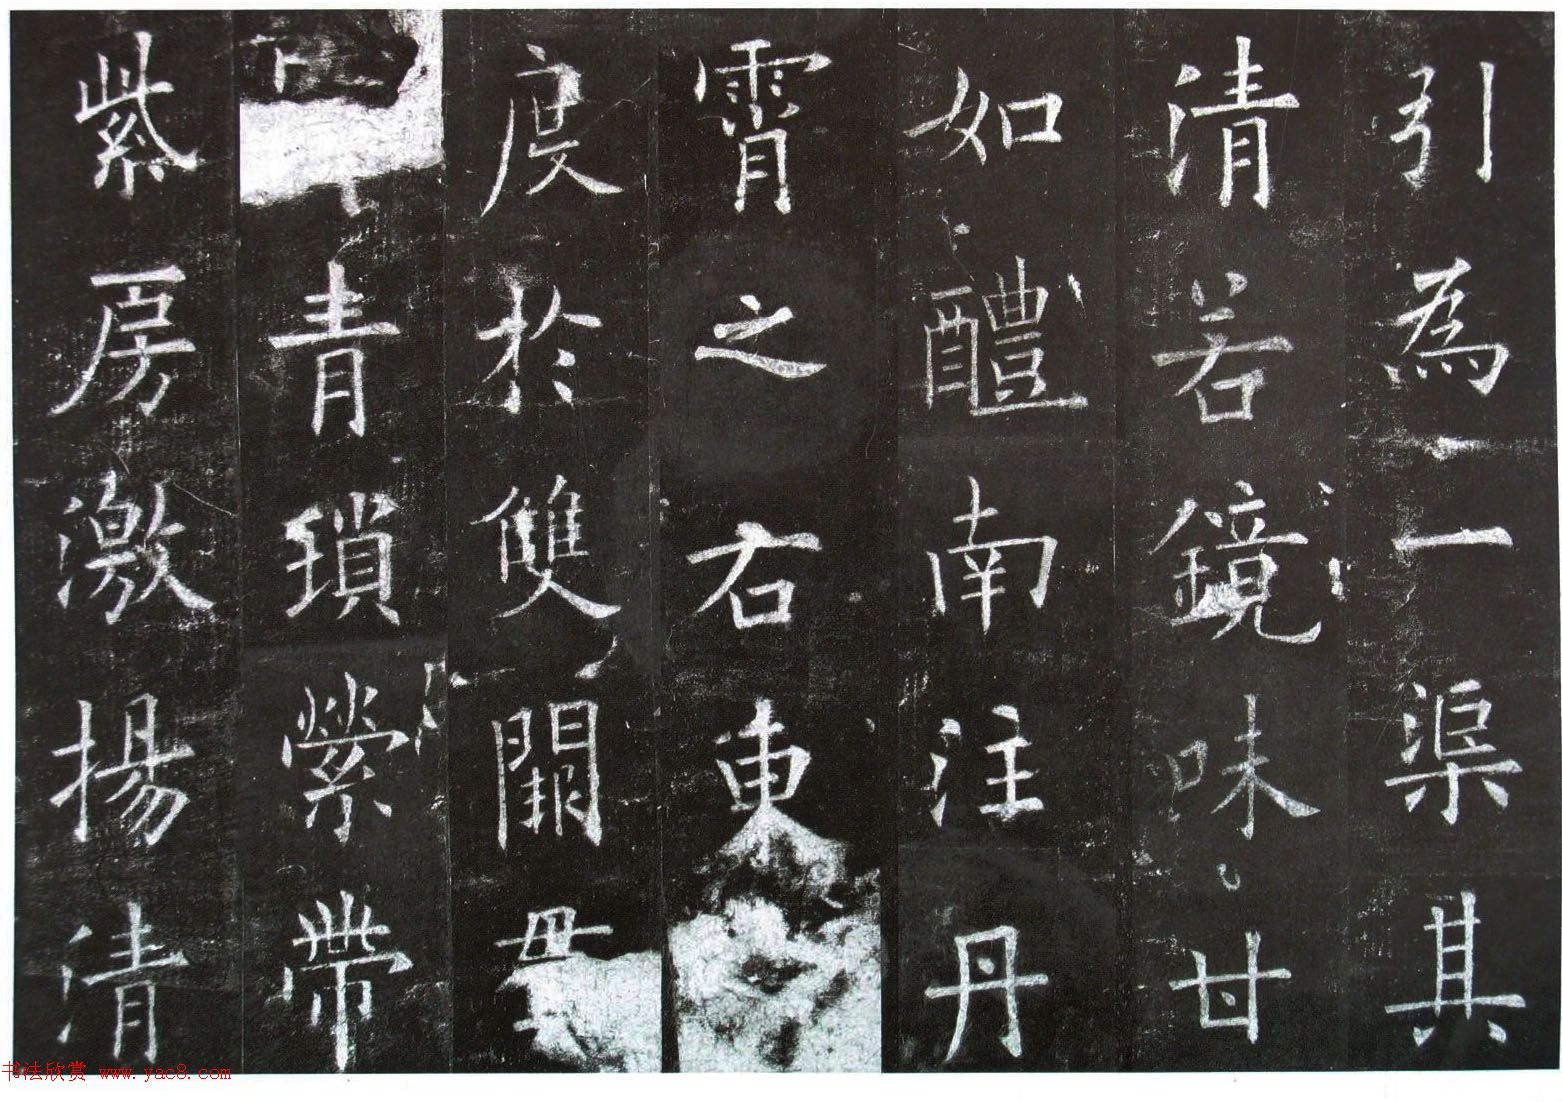 引為一渠其
清若鏡味甘
如醴南注丹
霄之右東
度於雙闕
青瑣縈帶
紫房激揚清
书法欣赏 www.yac8.com